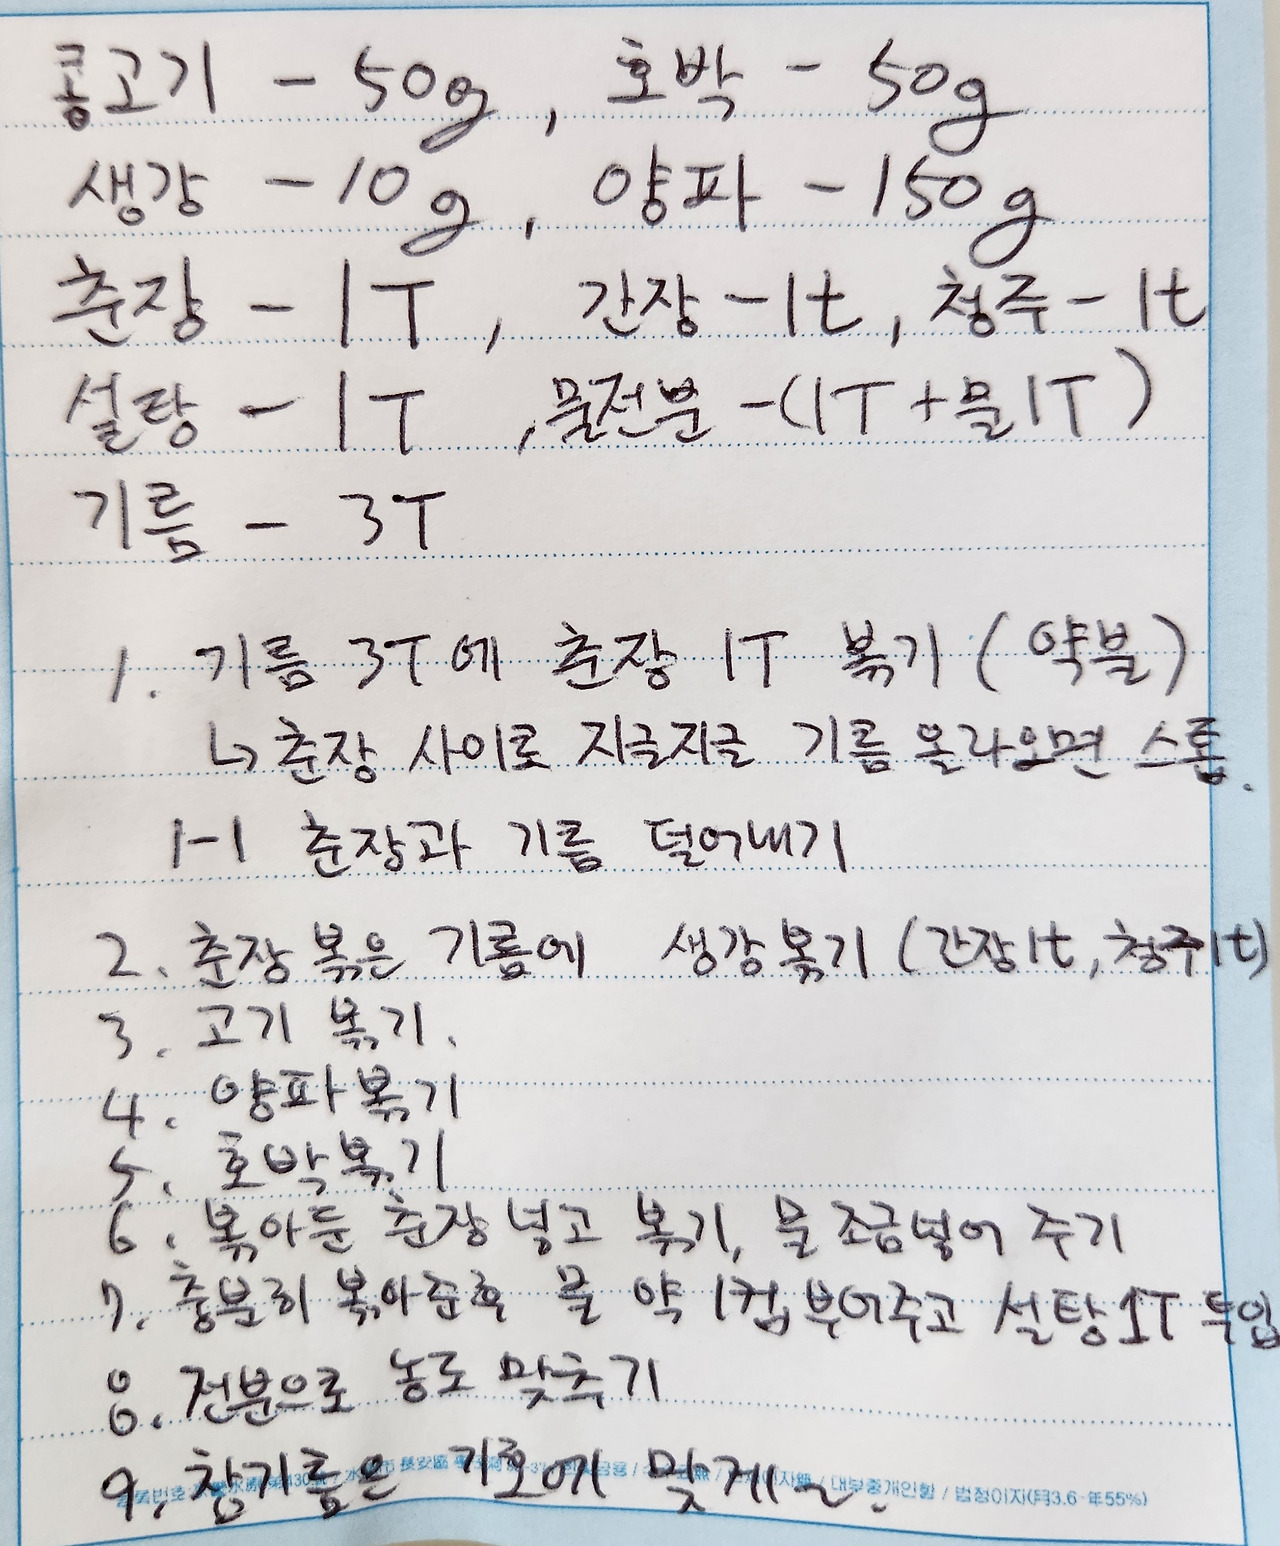 콩고기 - 50g, 호박 - 50g
생강 - 10g, 양파 - 150g
춘장 - 1T, 간장 - 1t, 청주 - 1t
설탕 - 1T, 물전분 - (1T + 물1T)
기름 - 3T
1. 기름 3T에 춘장 1T 볶기 (약불)
↳ 춘장 사이로 지글지글 기름 올라오면 스톱.
1-1 춘장과 기름 덜어내기
2. 춘장 볶은 기름에 생강볶기 (간장1t, 청주1t)
3. 고기 볶기.
4. 양파볶기
5. 호박볶기
6. 볶아둔 춘장 넣고 볶기, 물 조금넣어 주기
7. 충분히 볶아준후 물 약 1컵 부어주고 설탕 1T 투입
8. 전분으로 농도 맞추기
9. 참기름은 기호에 맞게
/ 내부중개인황 / 법정이자(月3.6-年55%)